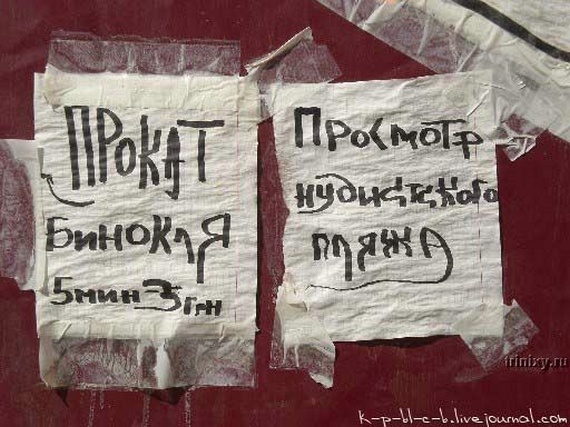 ПРОКАТ
БИНОКЛЯ
5мин-3грн
ПРОСМОТР
нудистского
пляжА
trinixy.ru
k-p-bl-c-b.livejournal.com